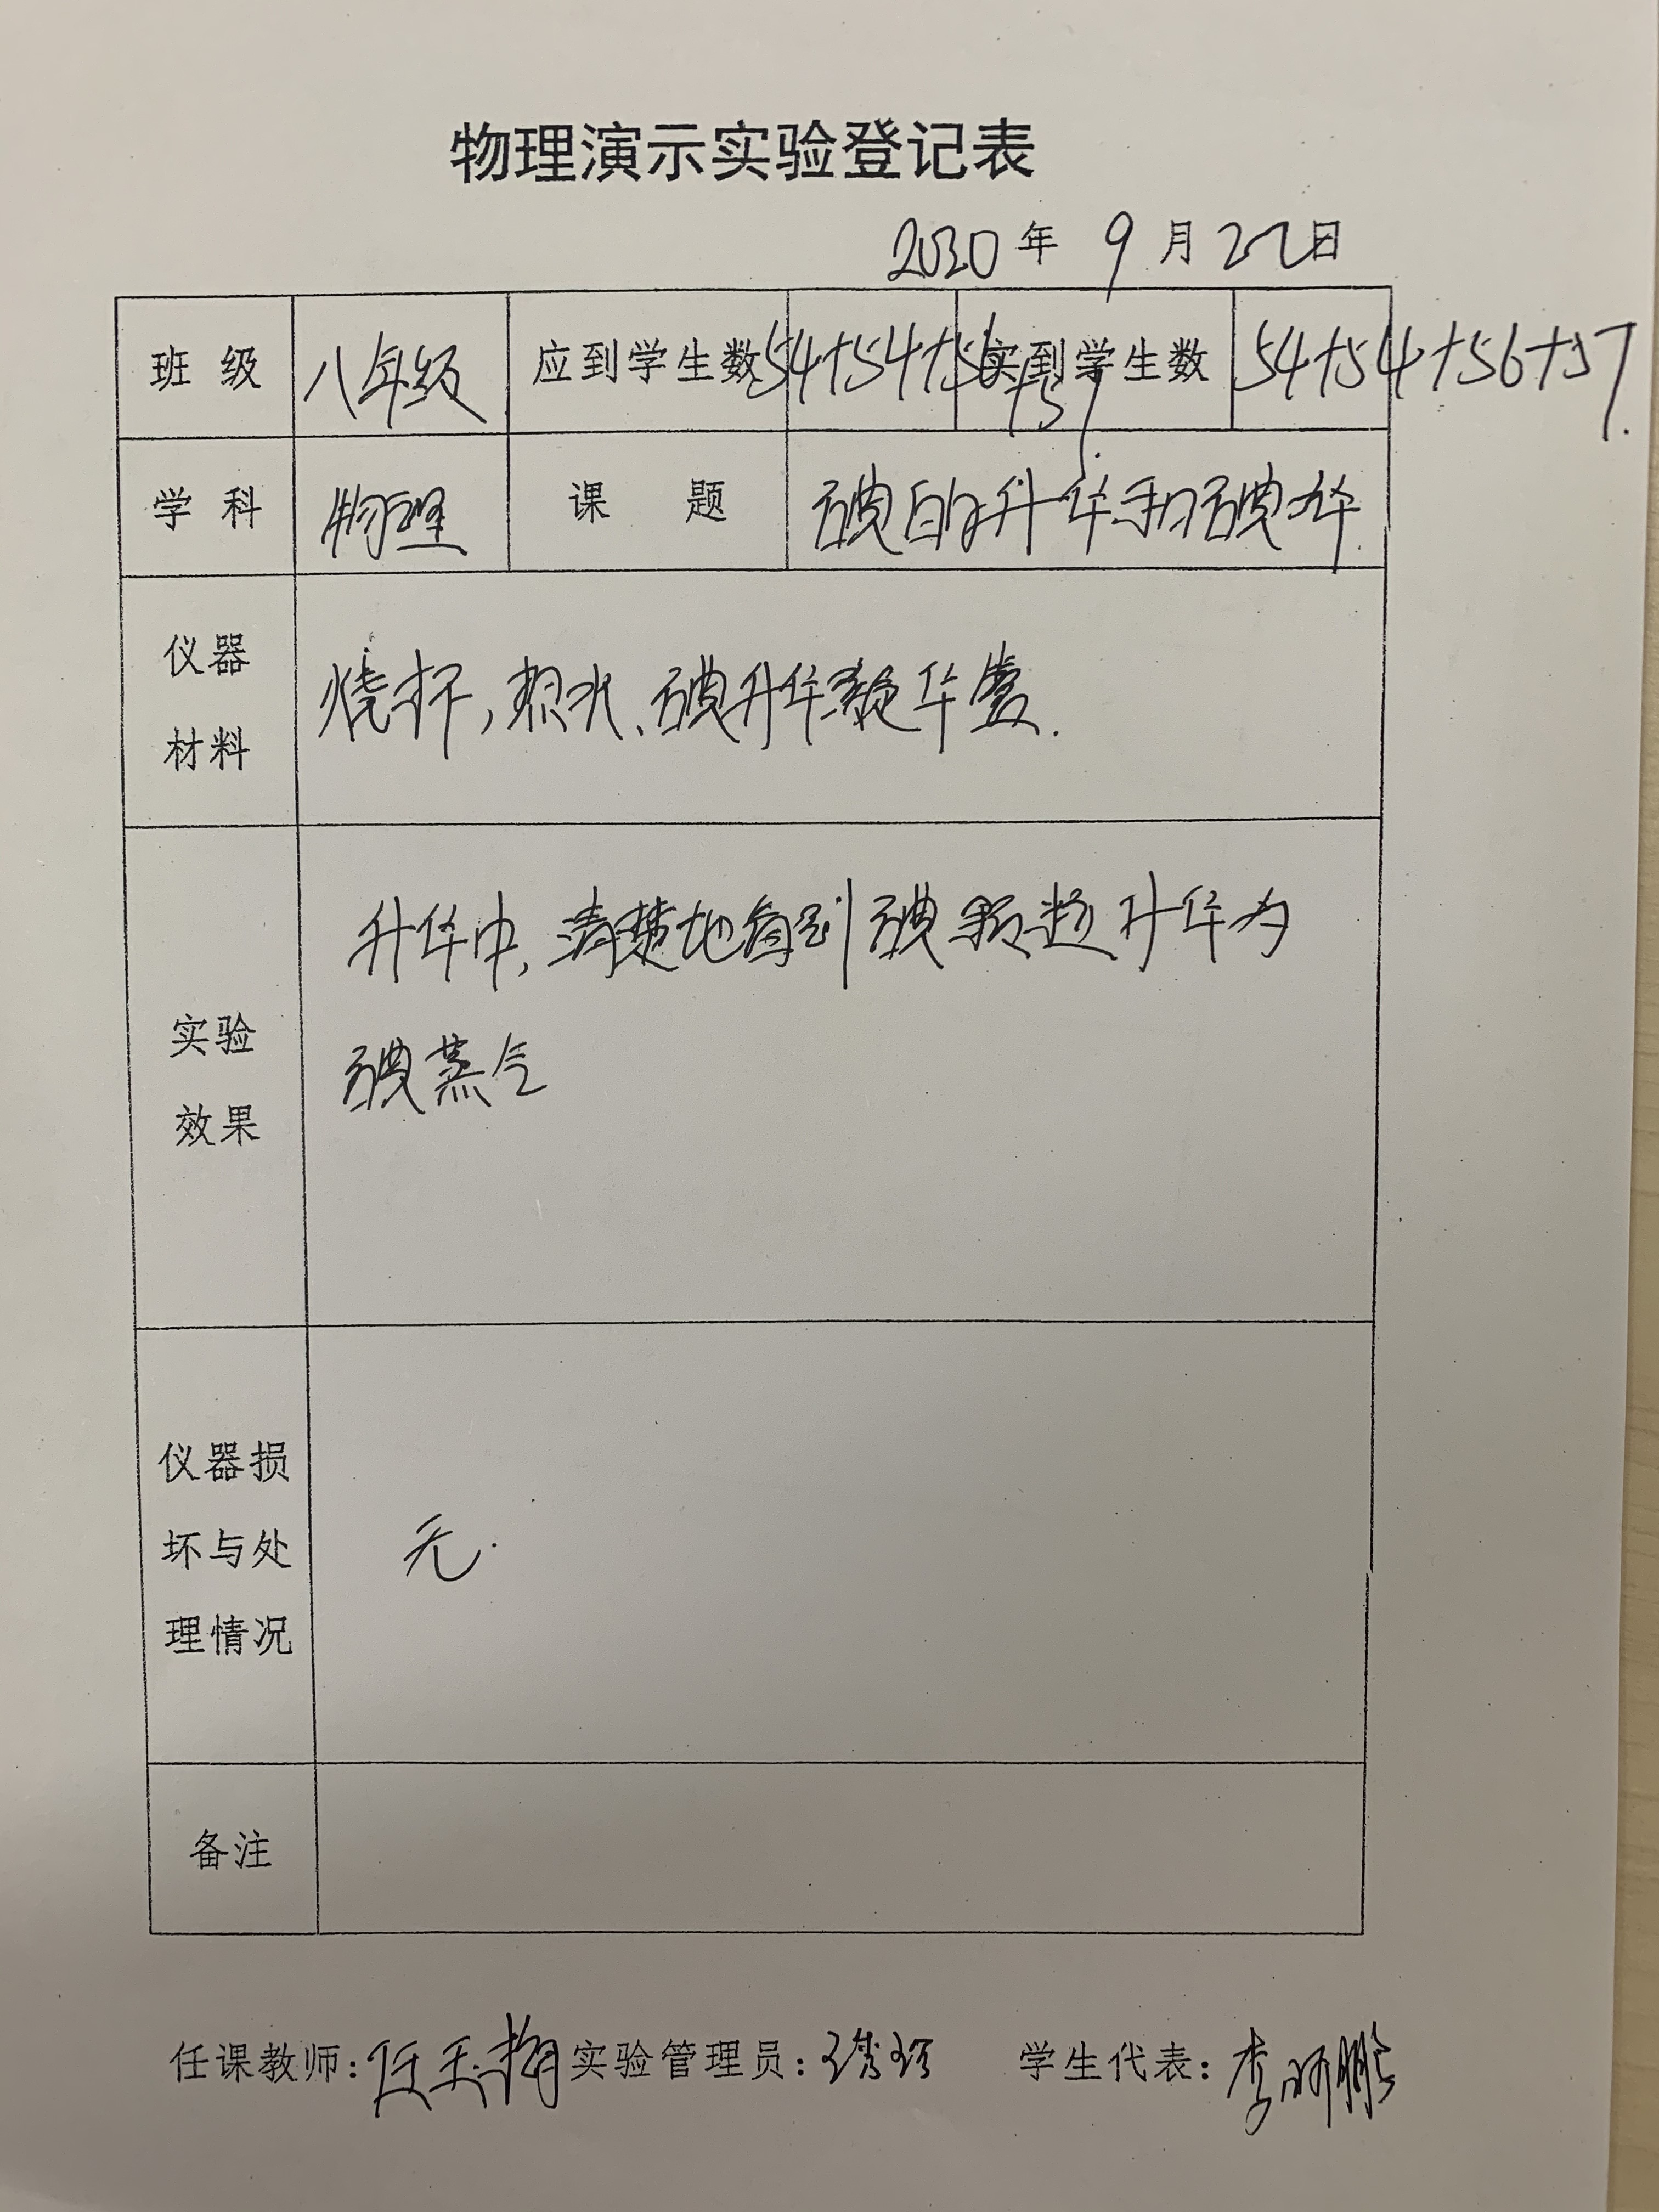 物理演示实验登记表
2020年 9月22日
班 级 八年级 应到学生数 54+54+56+57. 实到学生数 54+54+56+57.
学 科 物理 课 题 碘的升华和碘华.
仪器
材料
烧杯,热水、碘升华凝华管.
实验
效果
升华中,清楚地看到碘颗粒升华为
碘蒸气
仪器损
坏与处
理情况
无.
备注
任课教师: 实验管理员: 学生代表: